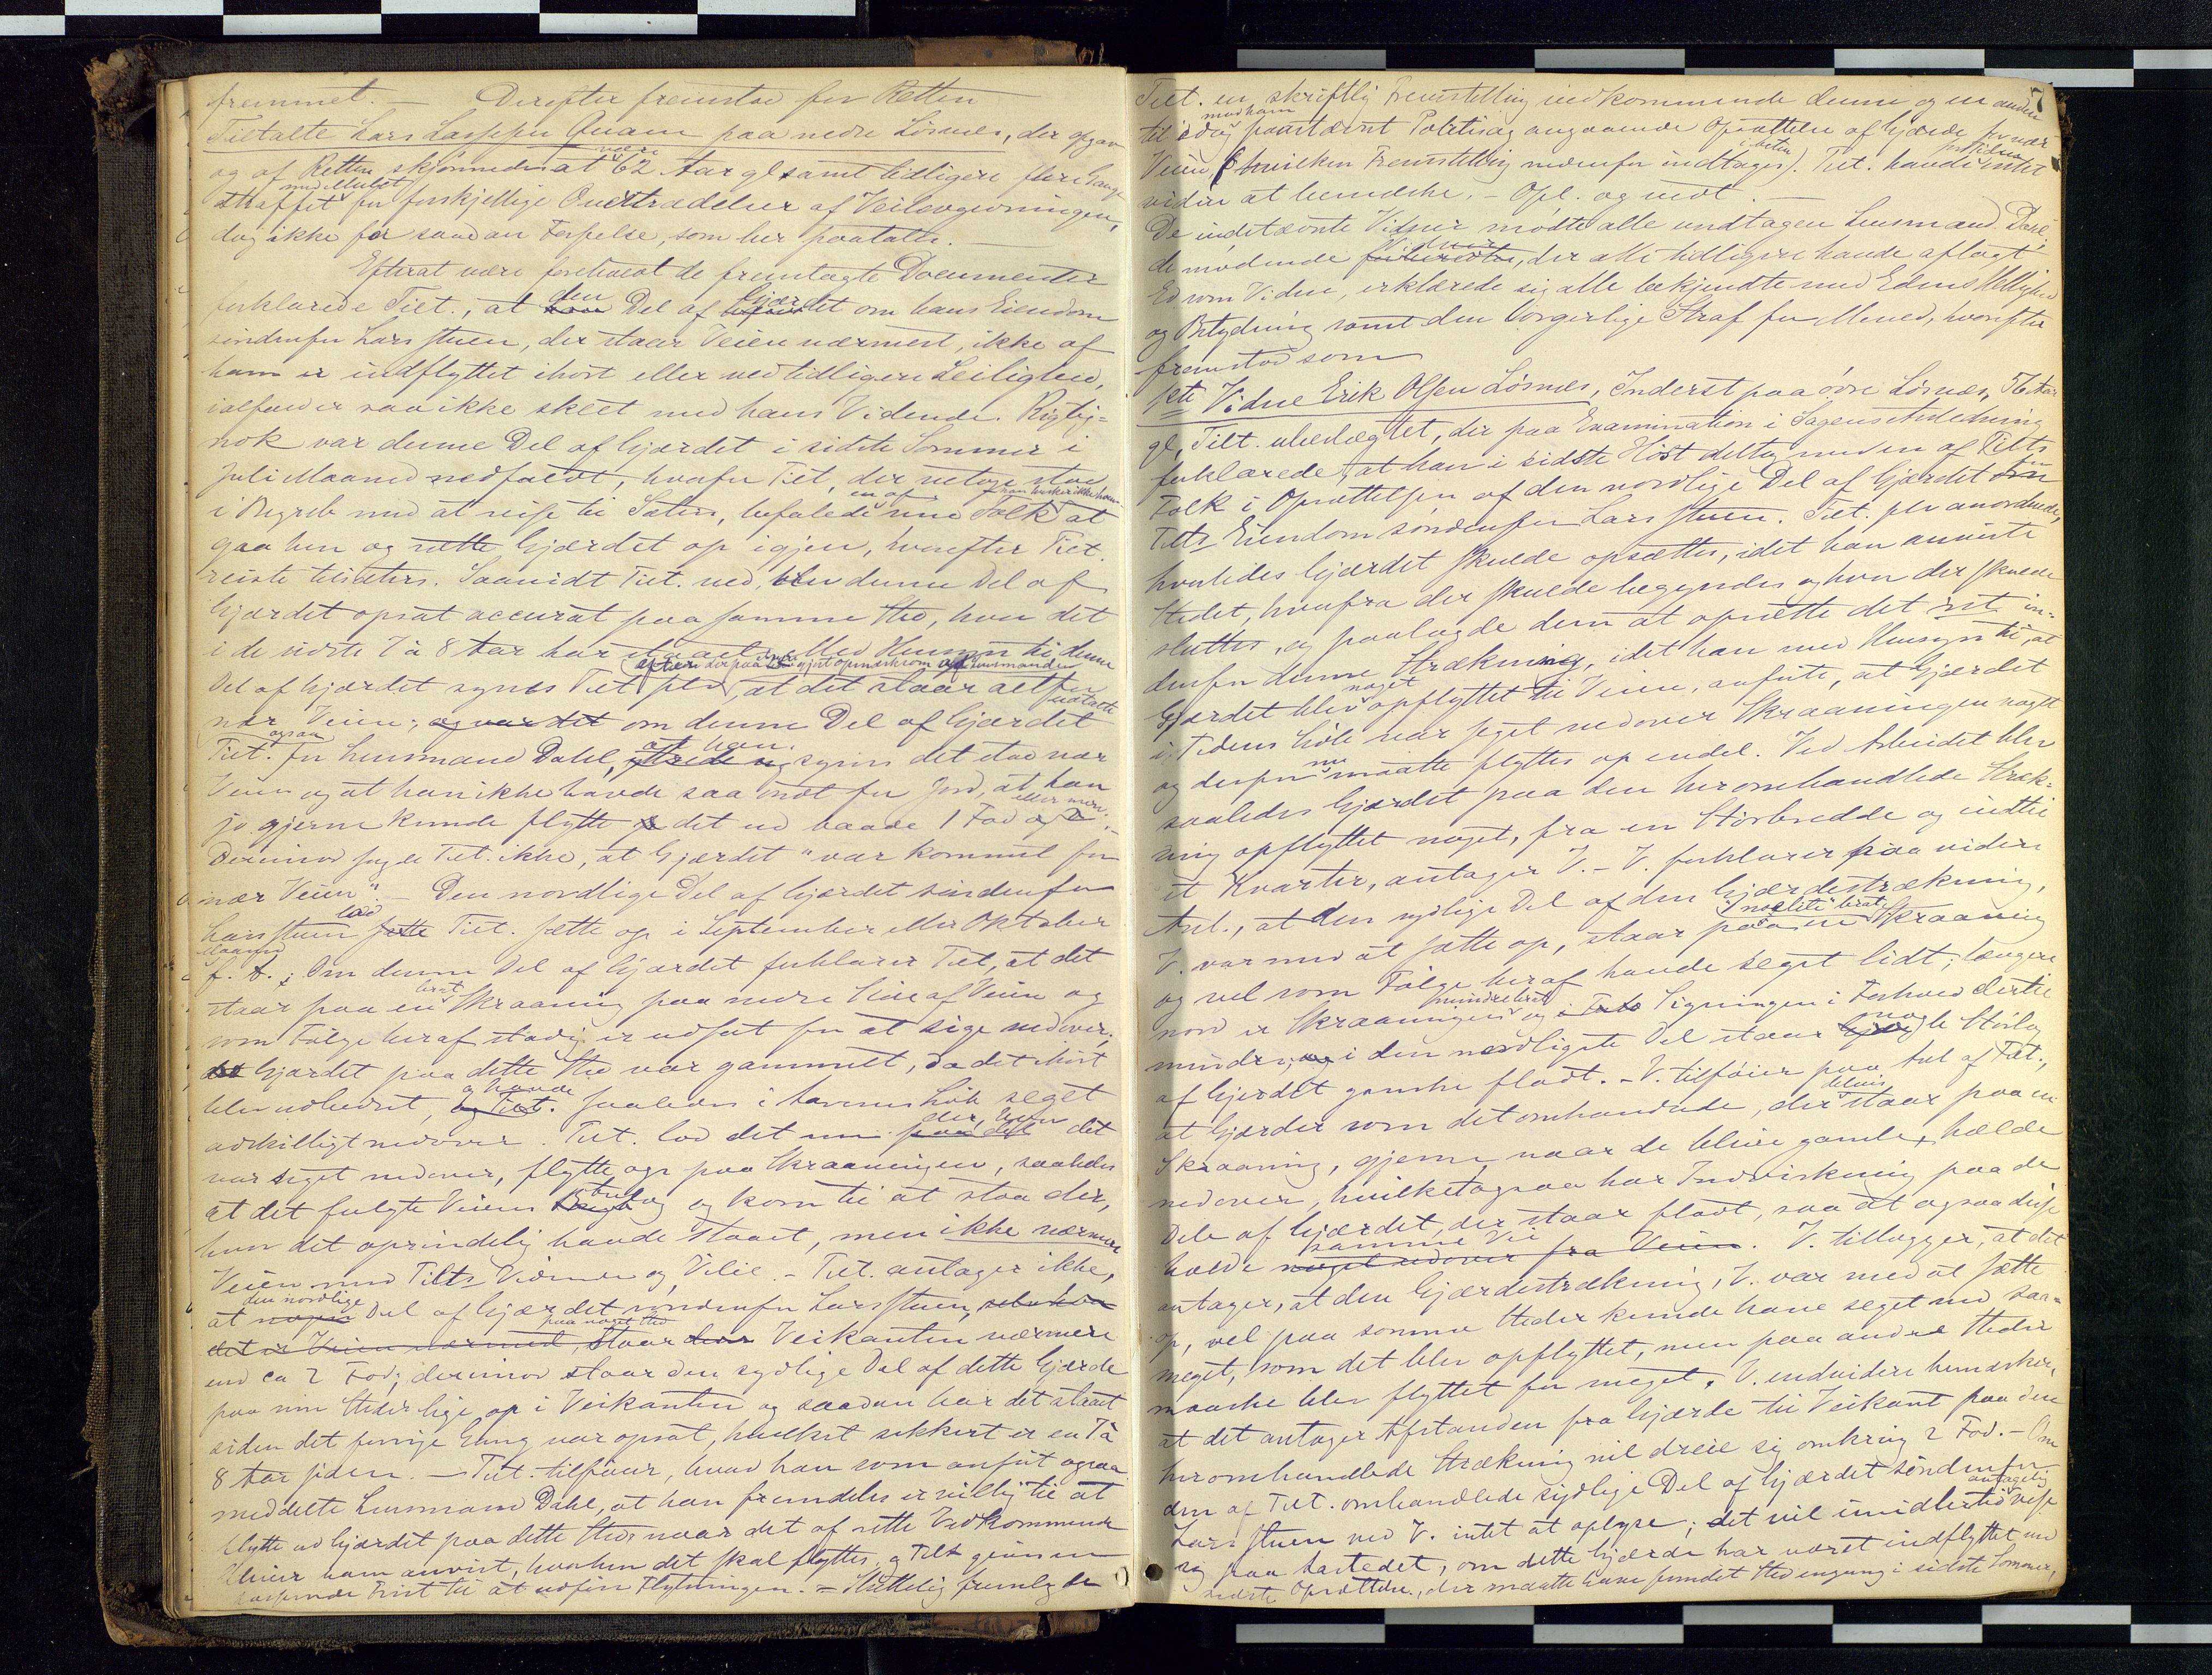 fremmet. — Derefter fremstod for Retten
Tiltalte Lars Larssen Qvam paa nedre Lösnæs, der opgav
og af Retten skjönnedes at være 62 Aar gl. samt tidligere flere Gange
straffet med Mulct for forskjellige Overtrædelser af Veilovgivningen,
dog ikke for saadan Forseelse, som her paatales.
Efterat være foreholdt de fremlagte Documenter
forklarede Tilt., at den Del af Gjærdet om hans Eiendom
söndenfor Larsstuen, der staar Veien nærmest, ikke af
ham er indflyttet ihöst eller ved tidligere Leilighed,
ialfald er saa ikke skeet med hans Vidende. Rigtig-
nok var denne Del af Gjærdet i sidste Sommer i
Juli Maaned nedfaldt, hvorfor Tilt., der netop stod
i Begreb med at reise til Sæters, befalede en af sine Folk han husker ikke hvem at
gaa hen og sætte Gjærdet op igjen, hvorefter Tilt.
reiste tilsæters. Saavidt Tilt. ved, blev denne Del af
Gjærdet opsat accurat paa samme Sted, hvor det
i de sidste 7 à 8 Aar har staaet. Med Hensyn til denne
Del af Gjærdet synes Tilt. selv, efter derpaa at være gjort opmærksom af Lensmanden, at det staar altfor
nær Veien; og var det om denne Del af Gjærdet udtalte
Tilt. ogsaa for Lensmand Dahl, at han synes det stod nær
Veien og at han ikke havde saa ondt for Jord, at han
jo gjerne kunde flytte det ud baade 1 Fod og 2 eller mere. —
Derimod sagde Tilt. ikke, at Gjærdet "var kommet for
nær Veien". — Den nordlige Del af Gjærdet söndenfor
Larsstuen lod Tilt. sætte op i September eller Oktober
Maaned f. A.; Om denne Del af Gjærdet forklarer Tilt., at det
staar paa en brat Skraaning paa nedre Side af Veien og
som Fölge heraf stadig er udsat for at sige nedover;
Gjærdet paa dette Sted var gammelt, da det ihöst
blev udbedret, og havde saaledes i Aarenes Löb seget
adskilligt nedover. Tilt. lod det nu der, hvor det
var seget nedover, flytte op paa Skraaningen, saaledes
at det fulgte Veiens og kom til at staa der,
hvor det oprindelig havde staaet, men ikke nærmere
Veien med Tilts Vidende og Vilie. — Tilt. antager ikke,
at den nordlige Del af Gjærdet söndenfor Larsstuen, selv hvor
det er Veien nærmest, staar paa noget Sted Veikanten nærmere
end ca 2 Fod; derimod staar den sydlige Del af dette Gjærde
paa sine Steder lige op i Veikanten og saadan har det staaet
siden det forrige Gang var opsat, hvilket sikkert er en 7 à
8 Aar siden. — Tilt. tilföier, hvad han som anfört ogsaa
meddelte Lensmand Dahl, at han fremdeles er villig til at
flytte ud Gjærdet paa dette Sted naar det af rette Vedkommende
bliver ham anvist, hvorhen det skal flyttes, og Tilt. gives en
passende Frist til at udföre Flytningen. = Skriftlig fremlagde
7
Tilt. en skriftlig Fremstilling vedkommende denne og en anden
til idag mod ham paastævnt Politisag angaaende Opsættelse af Gjærde for nær
Veien (hvilken Fremstilling nedenfor indtages). Tilt. havde intet
videre at bemærke. — Opl. og vedt. —
De indstævnte Vidner mödte alle undtagen Lensmand Dahl;
de mödende Vidner, der alle tidligere havde aflagt
Ed som Vidne, erklærede sig alle bekjendte med Edens Hellighed
og Betydning samt den borgerlige Straf for Mened, hvorefter
fremstod som
1ste Vidne Erik Olsen Lösnæs, Inderst paa övre Lösnæs, 76 Aar
gl., Tilt. ubeslægtet, der paa Examination i Sagens Anledning
forklarede, at han i sidste Höst deltog med en af Tilts
Folk i Opsættelsen af den nordlige Del af Gjærdet om
Tilts Eiendom söndenfor Larsstuen. Tilt. selv anordnede,
hvorledes Gjærdet skulde opsættes, idet han anviste
Stedet, hvorfra der skulde begyndes og hvor der skulde
sluttes, og paalagde dem at opsætte det ret in-
denfor denne Strækning, idet han med Hensyn til, at
Gjærdet blev noget opflyttet til Veien, anförte, at Gjærdet
i Tidens Löb var seget nedover Skraaningen noget
og derfor nu maatte flyttes op endel. Ved Arbeidet blev
saaledes Gjærdet paa den heromhandlede Stræk-
ning opflyttet noget, fra en Störbredde og indtil
et Kvarter, antager V. — V. forklarer paa videre
Anl., at den sydlige Del af den Gjærdestrækning,
V. var med at sætte op, staar paa en Skraaning
og vel som Fölge heraf havde seget lidt; længere
nord er Skraaningen mindre brat og Signingen i Forhold dertil
mindre; i den nordligste Del staar nogle Störlag
af Gjerdet ganske fladt. — V. tilföier paa Anl. af Tilt.,
at Gjærder som det omhandlede, der delvis staar paa en
Skraaning, gjerne naar de blive gamle, hælde
nedover, hvilket ogsaa har Indvirkning paa de
Dele af Gjærdet, der staar fladt, saa at ogsaa disse
hælde samme Vei. V. tillægger, at det
antager, at den Gjærdestrækning, V. var med at sætte
op, vel paa somme Steder kunde have seget ned saa-
meget, som det blev opflyttet, men paa andre Steder
maaske blev flyttet for meget. V. endvidere bemærker,
at det antager Afstanden fra Gjærde til Veikant paa den
heromhandlede Strækning vil dreie sig omkring 2 Fod. — Om
den af Tilt. omhandlede sydlige Del af Gjærdet söndenfor
Larsstuen ved V. intet at oplyse; det vil imidlertid antagelig vise
sig paa Aastedet, om dette Gjærde har været indflyttet ved
sidste Opsættelse, der maatte have fundet Sted engang i sidste Sommer,